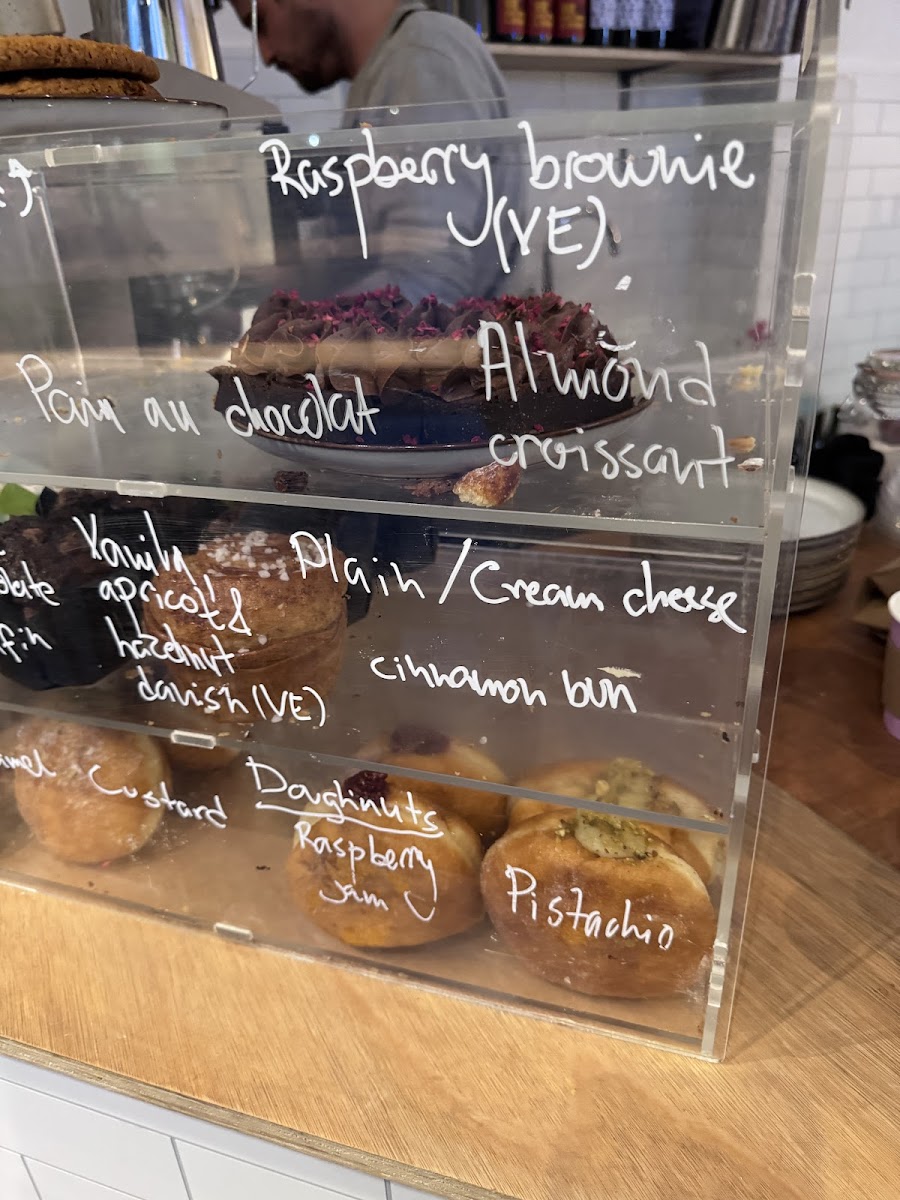 Raspberry brownie
(VE)
Pain au chocolat
Almond
croissant
Vanilla
apricot &
hazelnut
danish (VE)
Plain / Cream cheese
cinnamon bun
Custard
Doughnuts
Raspberry
Jam
Pistachio